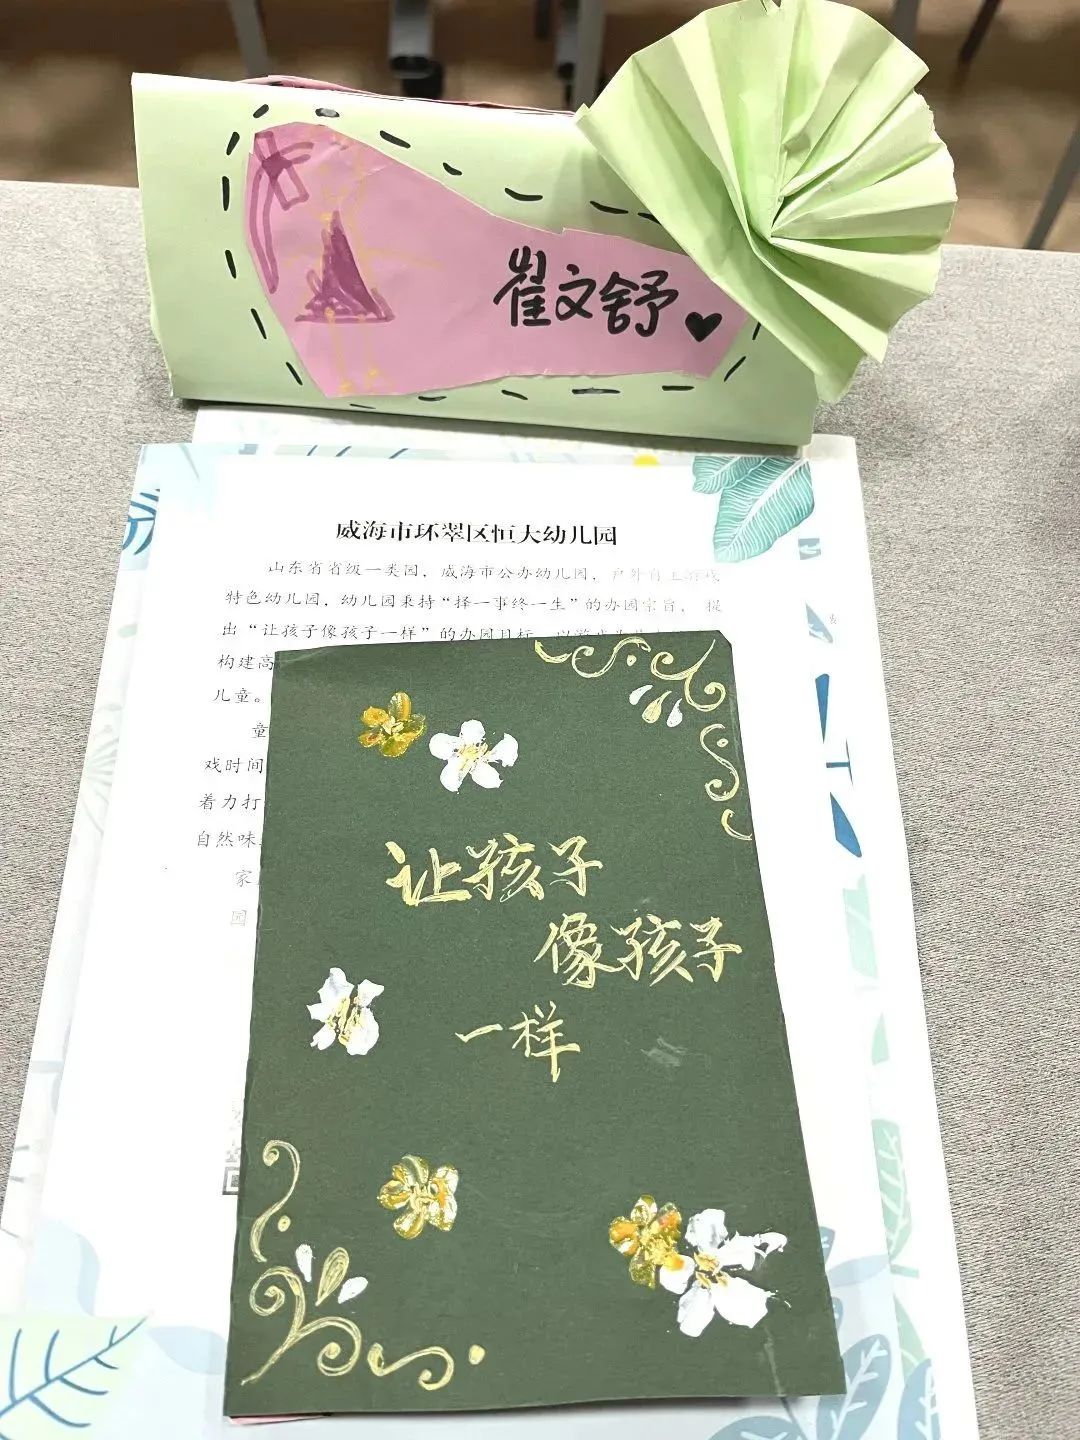 崔文舒
威海市环翠区恒大幼儿园
山东省省级一类园，威海市公办幼儿园，户外自主游戏
特色幼儿园，幼儿园秉持“择一事终一生”的办园宗旨，提
出“让孩子像孩子一样”的办园目标，以游戏为
构建高
儿童。
童
戏时间
着力打
自然味
家
园
让孩子
像孩子
一样